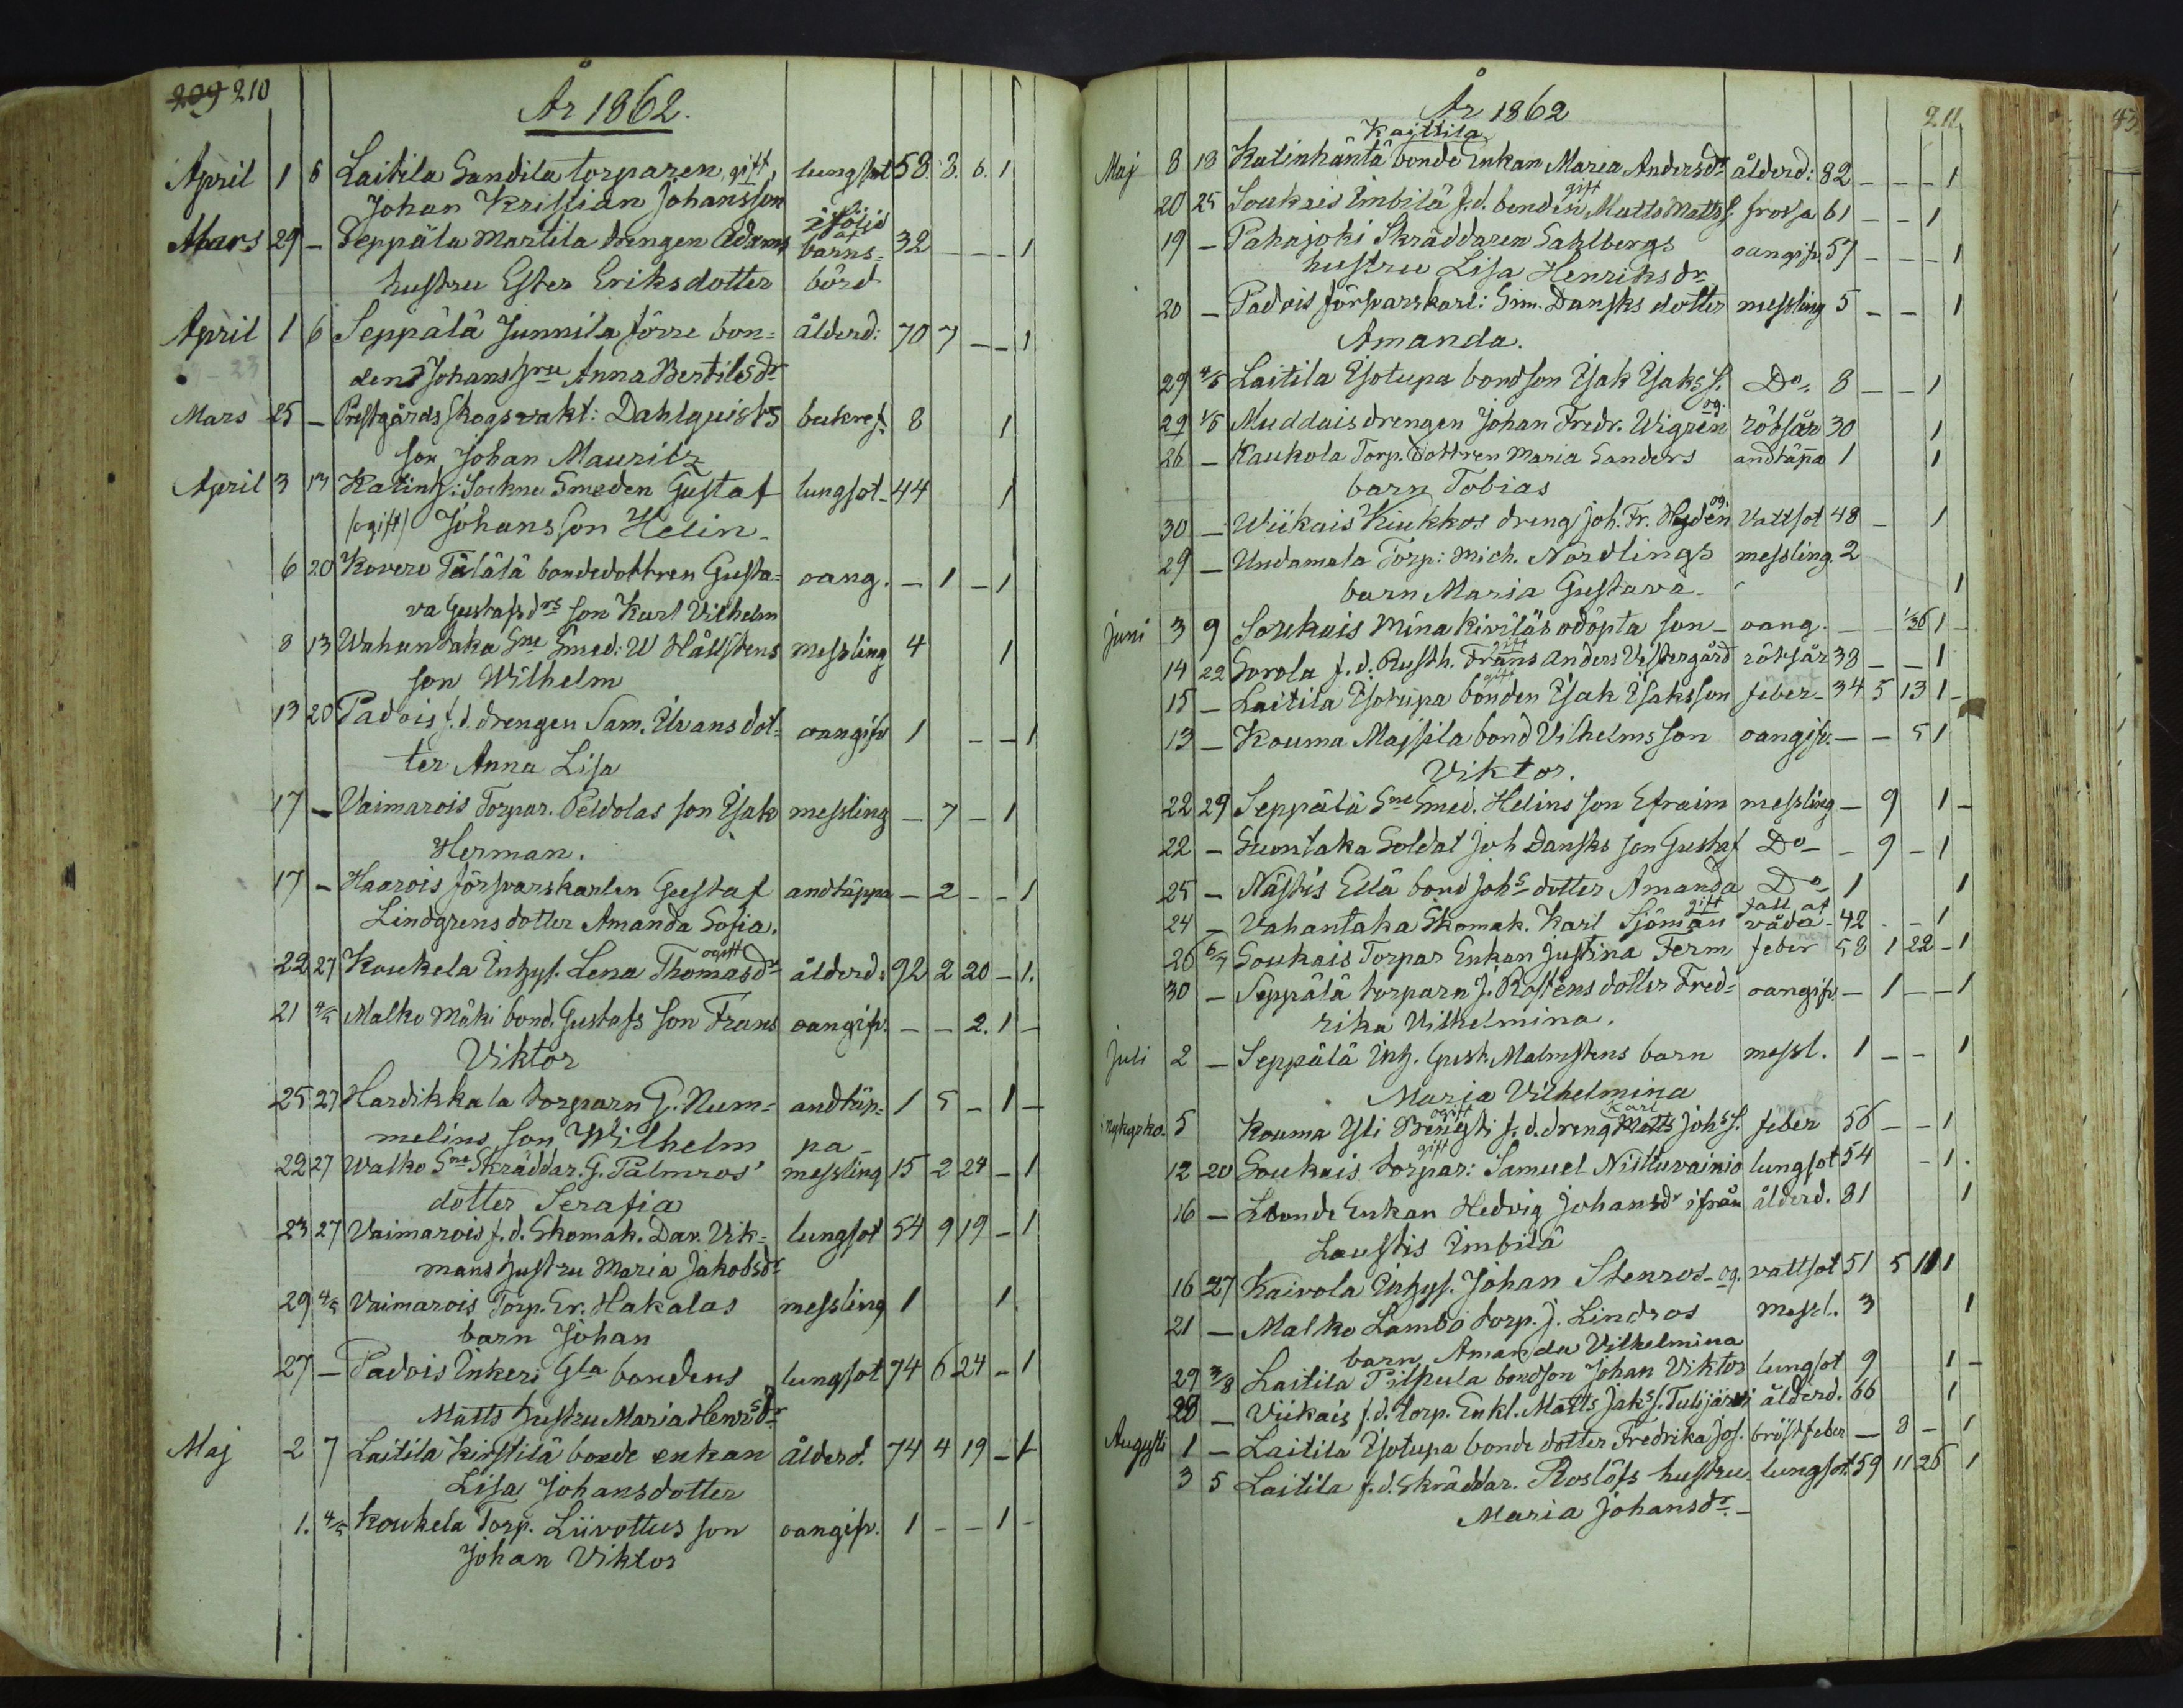 209 210
År 1862.
April 1 6 Laitila Sandila torparen, gift, lungsot 58. 8. 6. 1
Johan Kristian Johansson
Mars 29 – Seppälä Martila drengen Adams iföljd af barns- 32 – – – 1
hustru Ester Eriksdotter börd
April 1 6 Seppälä Junnila förre bon- ålderd: 70 7 – – 1
dens Johans hru Anna Bertilsdr
Mars 25 – Prestgårds skogsvakt: Dahlquists 8 1
son Johan Mauritz
April 3 13 Katinh: Sockne Smeden Gustaf lungsot – 44 1
(ogift) Johansson Helin –
6 20 Kovero Tälälä bondedottren Gusta- oang. – 1 – 1
va Gustafsdrs son Karl Vilhelm
8 13 Wahantaka Sne Smed: W Hållstens messling 4 1
son Wilhelm
13 20 Padois f.d. drengen Sam. Elvans dot- oangifv 1 – – 1
ter Anna Lisa
17 – Vaimarois Torpar. Peldolas son Isak messling – 7 – 1
Herman.
17 – Haarois försvarskarlen Gustaf andtäppa – 2 – – 1
Lindgrens dotter Amanda Sofia.
22 27 Koukela Inhys. Lena Thomasdr ogift ålderd: 92 2 20 – 1.
21 4/5 Malko Mäki bond. Gustafs son Frans oangifv. – – 2. 1 –
Viktor
25 27 Hardikkala torparn G. Num- andtäp- 1 5 – 1 –
melins son Wilhelm pa –
22 27 Walko Sne Skräddar. G. Palmros' messling 15 2 24 – 1
dotter Serafia
23 27 Vaimarois f.d. Skomak. Dav. Vik- lungsot 54 9 19 – 1
mans hustru Maria Jakobsdr
29 4/5 Vaimarois Torp. Er. Hakalas messling 1 1
barn Johan
27 – Padois Inkeri Gla bondens lungsot 74 6 24 – 1
Matts hustru Maria Henrsdr
Maj 2 7 Laitila Kirstilä bonde enkan ålderd. 74 4 19 – 1
Lisa Johansdotter
1. 4/5 Koukela Torp. Liivottus son oangifv. 1 – – 1 –
Johan Viktor
År 1862
211
Kajttila
Maj 8 18 Katinhäntä bonde Enkan Maria Andersdr ålderd: 82 – – – 1
20 25 Soukais Imbilä f.d. bonden gift Matts Matts f. frossa 61 – – 1
19 – Pahajoki Skräddaren Sahlbergs oangifv. 57 – – – 1
hustru Lisa Henriksdr
20 – Padois försvarskarl: Sim. Dansks dotter messling 5 – – 1
Amanda.
29 4/5 Laitila Isotupa bondson Isak Isaks f. Do„ 8 – – 1
29 1/5 Muddais drengen Johan Fredr. Wigren og. rötsår 30 1
26 – Kaukola Torp. dottren Maria Sanders andtäppa 1 1
barn Tobias
30 – Wiikais Kiukkos dreng Joh. Fr. Hyden og. Vattsot 48 – 1
29 – Undamala Torp: Mich. Nordlings messling. 2
barn Maria Gustava – 1
Juni 3 9 Soukais Mina Kiviläs odöpta son – oang. – – 1/36 1 –
14 22 Sorola f.d. Rusth. Frans Anders Vestergård gift rötsår 38 – – 1
15 – Laitila Isotupa bonden gift Isak Isaksson nerf feber – 34 5 13 1 –
13 – Kouma Majsila bond Vilhelms son oangifv. – – 5 1
Viktor.
22 29 Seppälä Sne Smed. Helins son Efraim messling – 9 1 –
22 – Suontaka Soldat Joh Dansks son Gustaf Do – – 9 – 1
25 – Nästis Eilä bond Johs dotter Amanda Do – 1 1
24 – Vahantaka Skomak. Karl Sjöman gift fall af våda – 42 – 1
26 6/7 Soukais Torpar Enkan Justina Ferm nerf feber 58 1 22 – 1
30 – Seppälä torparn J. Rostens dotter Fred- oangifv. – 1 – – 1
rika Vilhelmina.
Juli 2 – Seppälä Inh. Gust. Malmstens barn messl. 1 – – 1
Maria Vilhelmina
5 Kouma Yli ogift f.d. dreng Matts Karl Johs f. nerf feber 56 – – 1
12 20 Soukais torpar: gift Samuel Niittuvainio lungsot 54 – 1.
16 – Lbonde Enkan Hedvig Johansdr ifrån ålderd. 81 1
Laustis Imbilä
16 27 Kaivola Inhys. Johan Stenros – og. vattsot 51 5 11 1
21 – Malko Lambo torp. J. Lindros messl. 3 1
barn Amanda Vilhelmina
29 3/8 Laitila Pilpula bondson Johan Viktor lungsot 9 1 –
28 – Viikais f.d. torp. Enkl. Matts Jaks f. Tulijärvi ålderd. 66 1
Augusti 1 – Laitila Isotupa bonde dotter Fredrika Jos. bröstfeber – 8 – 1
3 5 Laitila f.d. Skräddar. Roslöfs hustru lungsot 59 11 26 1
Maria Johansdr –
43